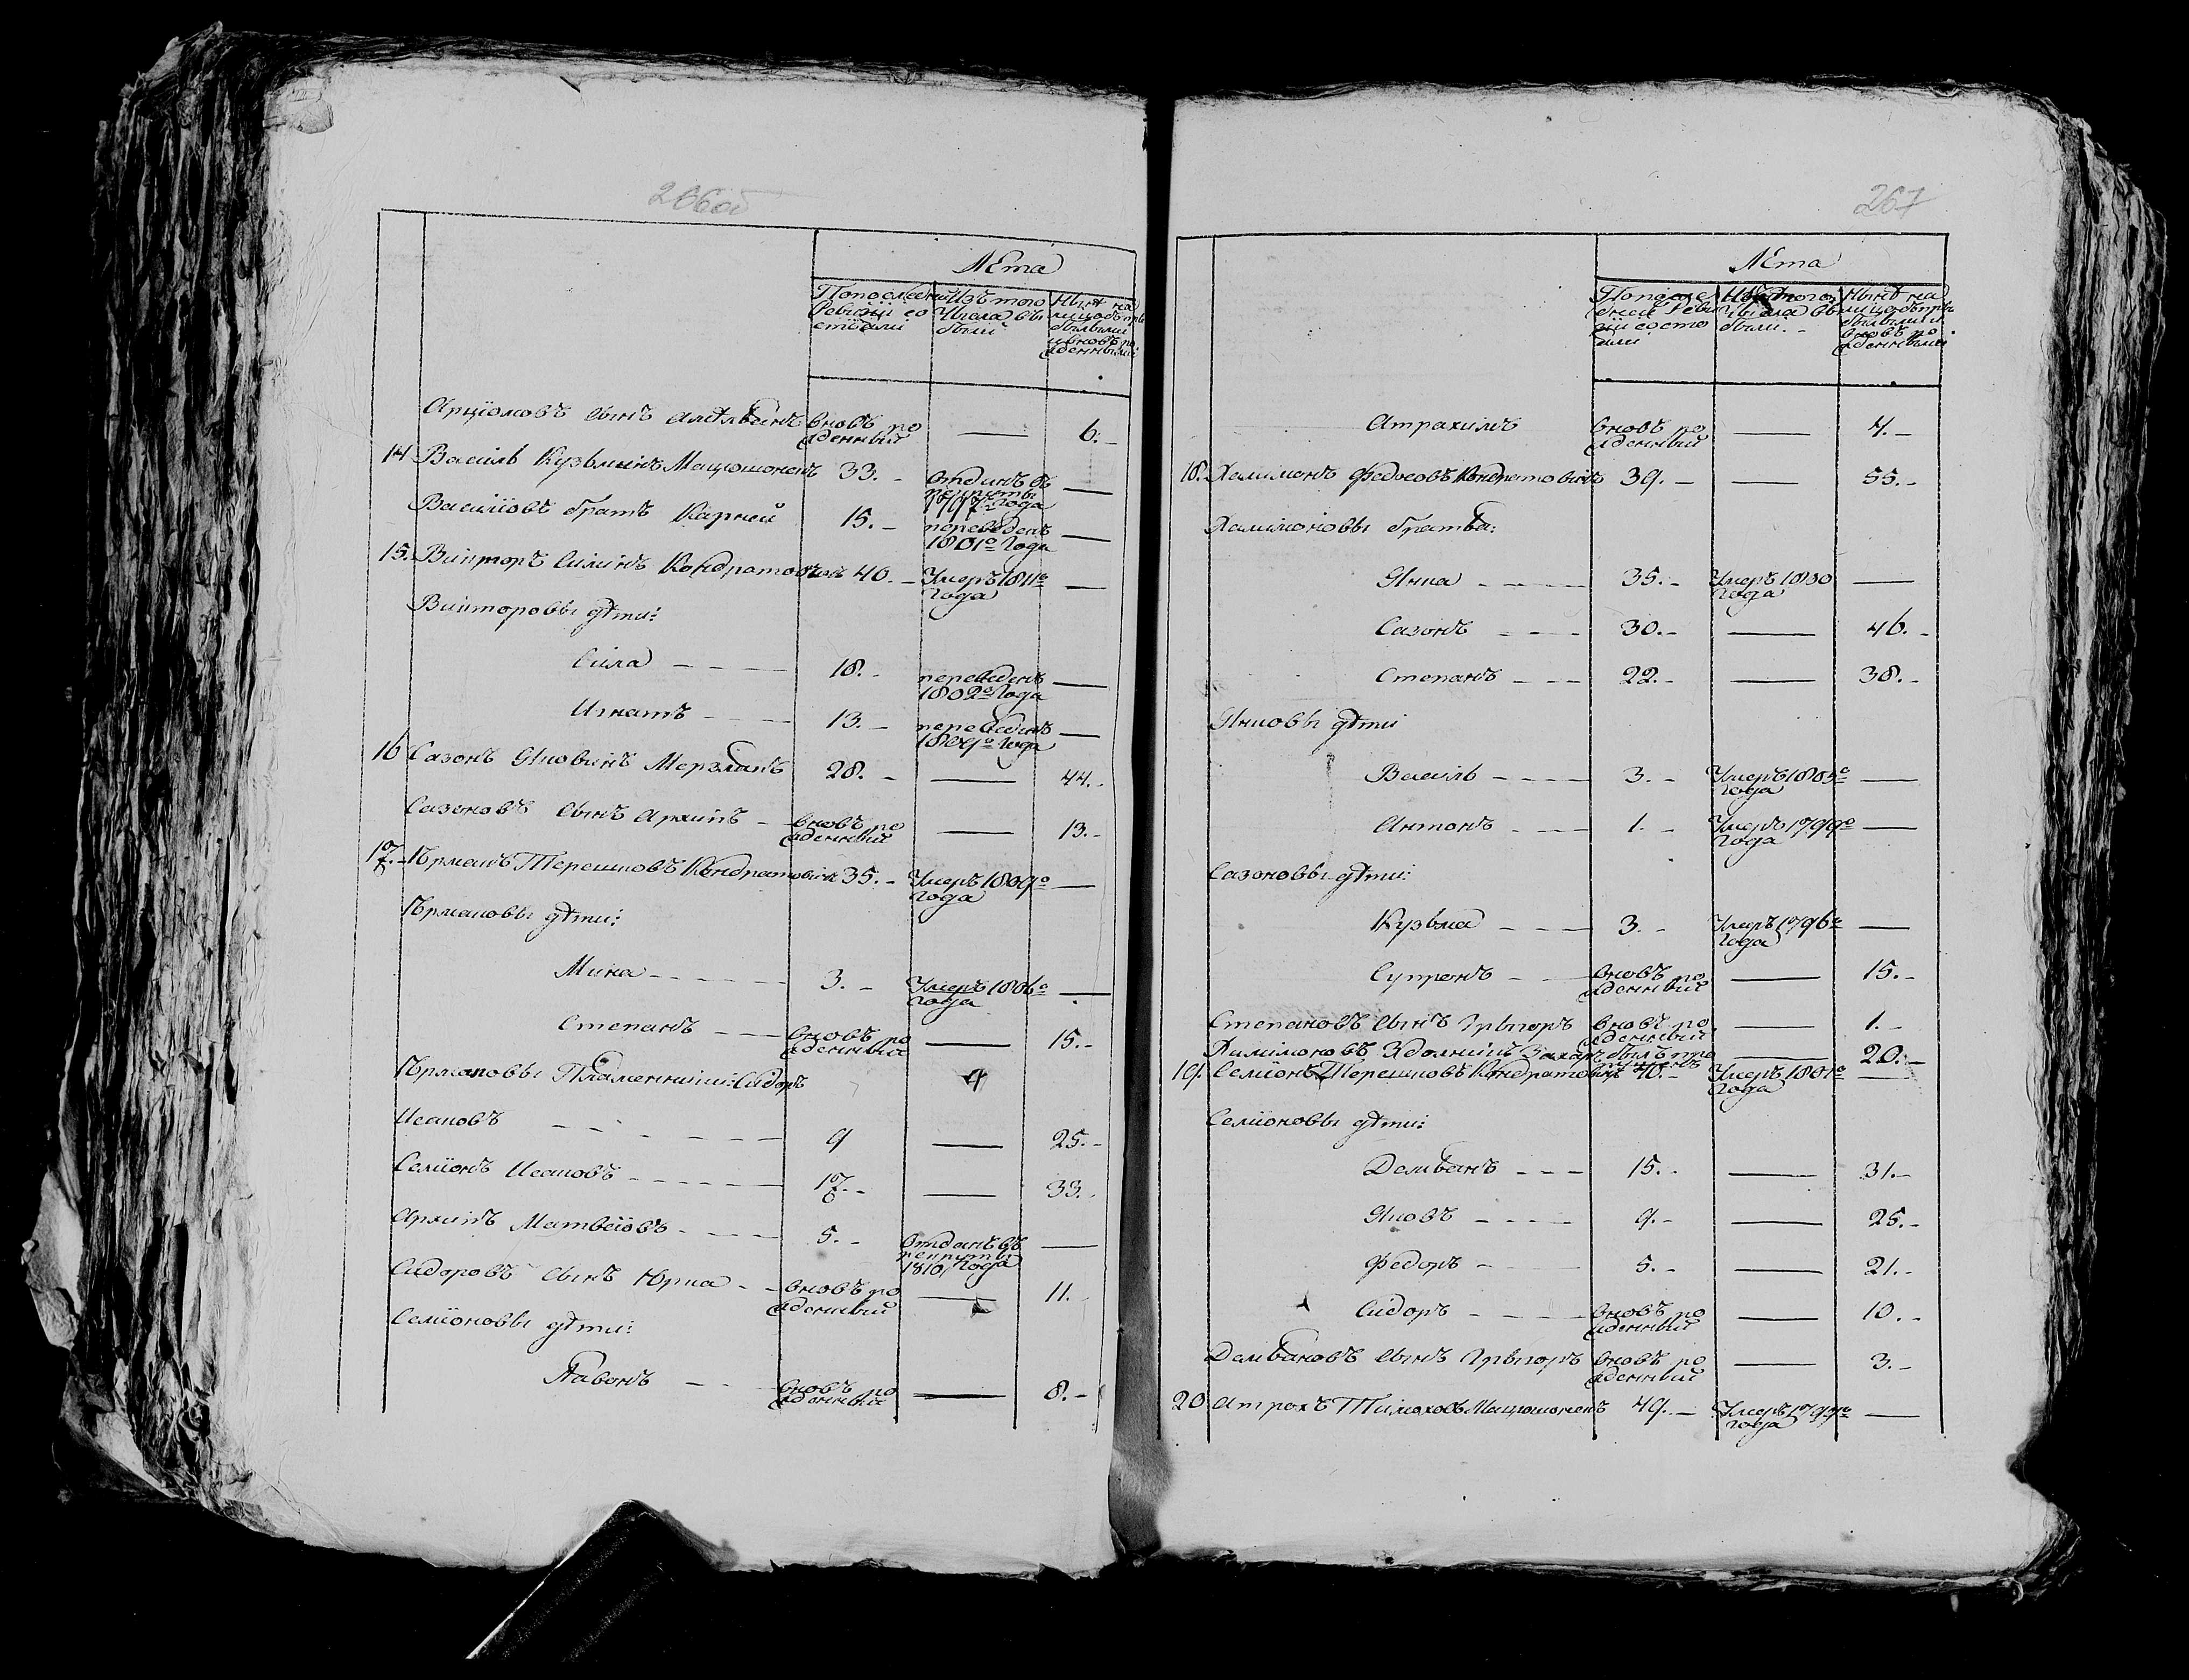 266об
Лета
По последней Ревизии состояли
Изъ того числа выбыли
Ныне на лицо съ прибылыми и вновь рожденными
Арцiомовъ сынъ вновь рожденный — 6.
14 Василь Кузьминъ Мацюшонокъ 33. отданъ въ рекруты 1797 года —
Василiовъ братъ Карней 15. переведенъ 1801го года —
15. Викторъ Силинъ Кондратовичъ 40. Умеръ 1811го года —
Викторовы дѣти:
Сила 18. переведенъ 1802го года —
Игнатъ 13. переведенъ 1809го года —
16 Сазонъ Яковинъ Мерзлякъ 28. — 44.
Сазоновъ сынъ Архипъ вновь рожденный — 13.
17. Ѣрмакъ Терешковъ Кондратовичъ 35. Умеръ 1809го года —
Ѣрмаковы дѣти:
Мина 3. Умеръ 1806го года —
Степанъ вновь рожденный — 15.
Ѣрмаковы Племенники: Сидоръ
Исаковъ 9 — 25.
Семiонъ Исаковъ 17. — 33.
Архипъ Матвеiовъ 5. отданъ въ рекруты 1810 года —
Сидоровъ сынъ Юрка вновь рожденный — 11.
Семiоновы дѣти:
Хавонъ вновь рожденный — 8.
267
Лета
По последней Ревизии состояли
Изъ того числа выбыли.
Ныне на лицо съ прибылыми и вновь рожденными
Атрахимъ вновь рожденный — 4.
18. Халимонъ Федосовъ Кондратовичъ 39. — 55.
Халимоновы братья:
Янка 35. Умеръ 1800 года —
Сазонъ 30. — 46.
Степанъ 22. — 38.
Янковы дѣти
Василь 3. Умеръ 1805го года —
Антонъ 1. Умеръ 1799го года —
Сазоновы дѣти:
Кузьма 3. Умеръ 1796го года —
Супронъ вновь рожденный — 15.
Степановъ сынъ Грыгоръ вновь рожденный — 1.
Халимоновъ Здольникъ Захаръ былъ — 20.
19. Семiонъ Терешковъ Кондратовичъ 40. Умеръ 1801го года —
Семiоновы дѣти:
Демьянъ 15. — 31.
Яковъ 9. — 25.
Федоръ 5. — 21.
Сидоръ вновь рожденный — 10.
Демьяновъ сынъ Грыгоръ вновь рожденный — 3.
20 Атрохъ Тимоховъ Мацюшонокъ 49. Умеръ 1799го года —